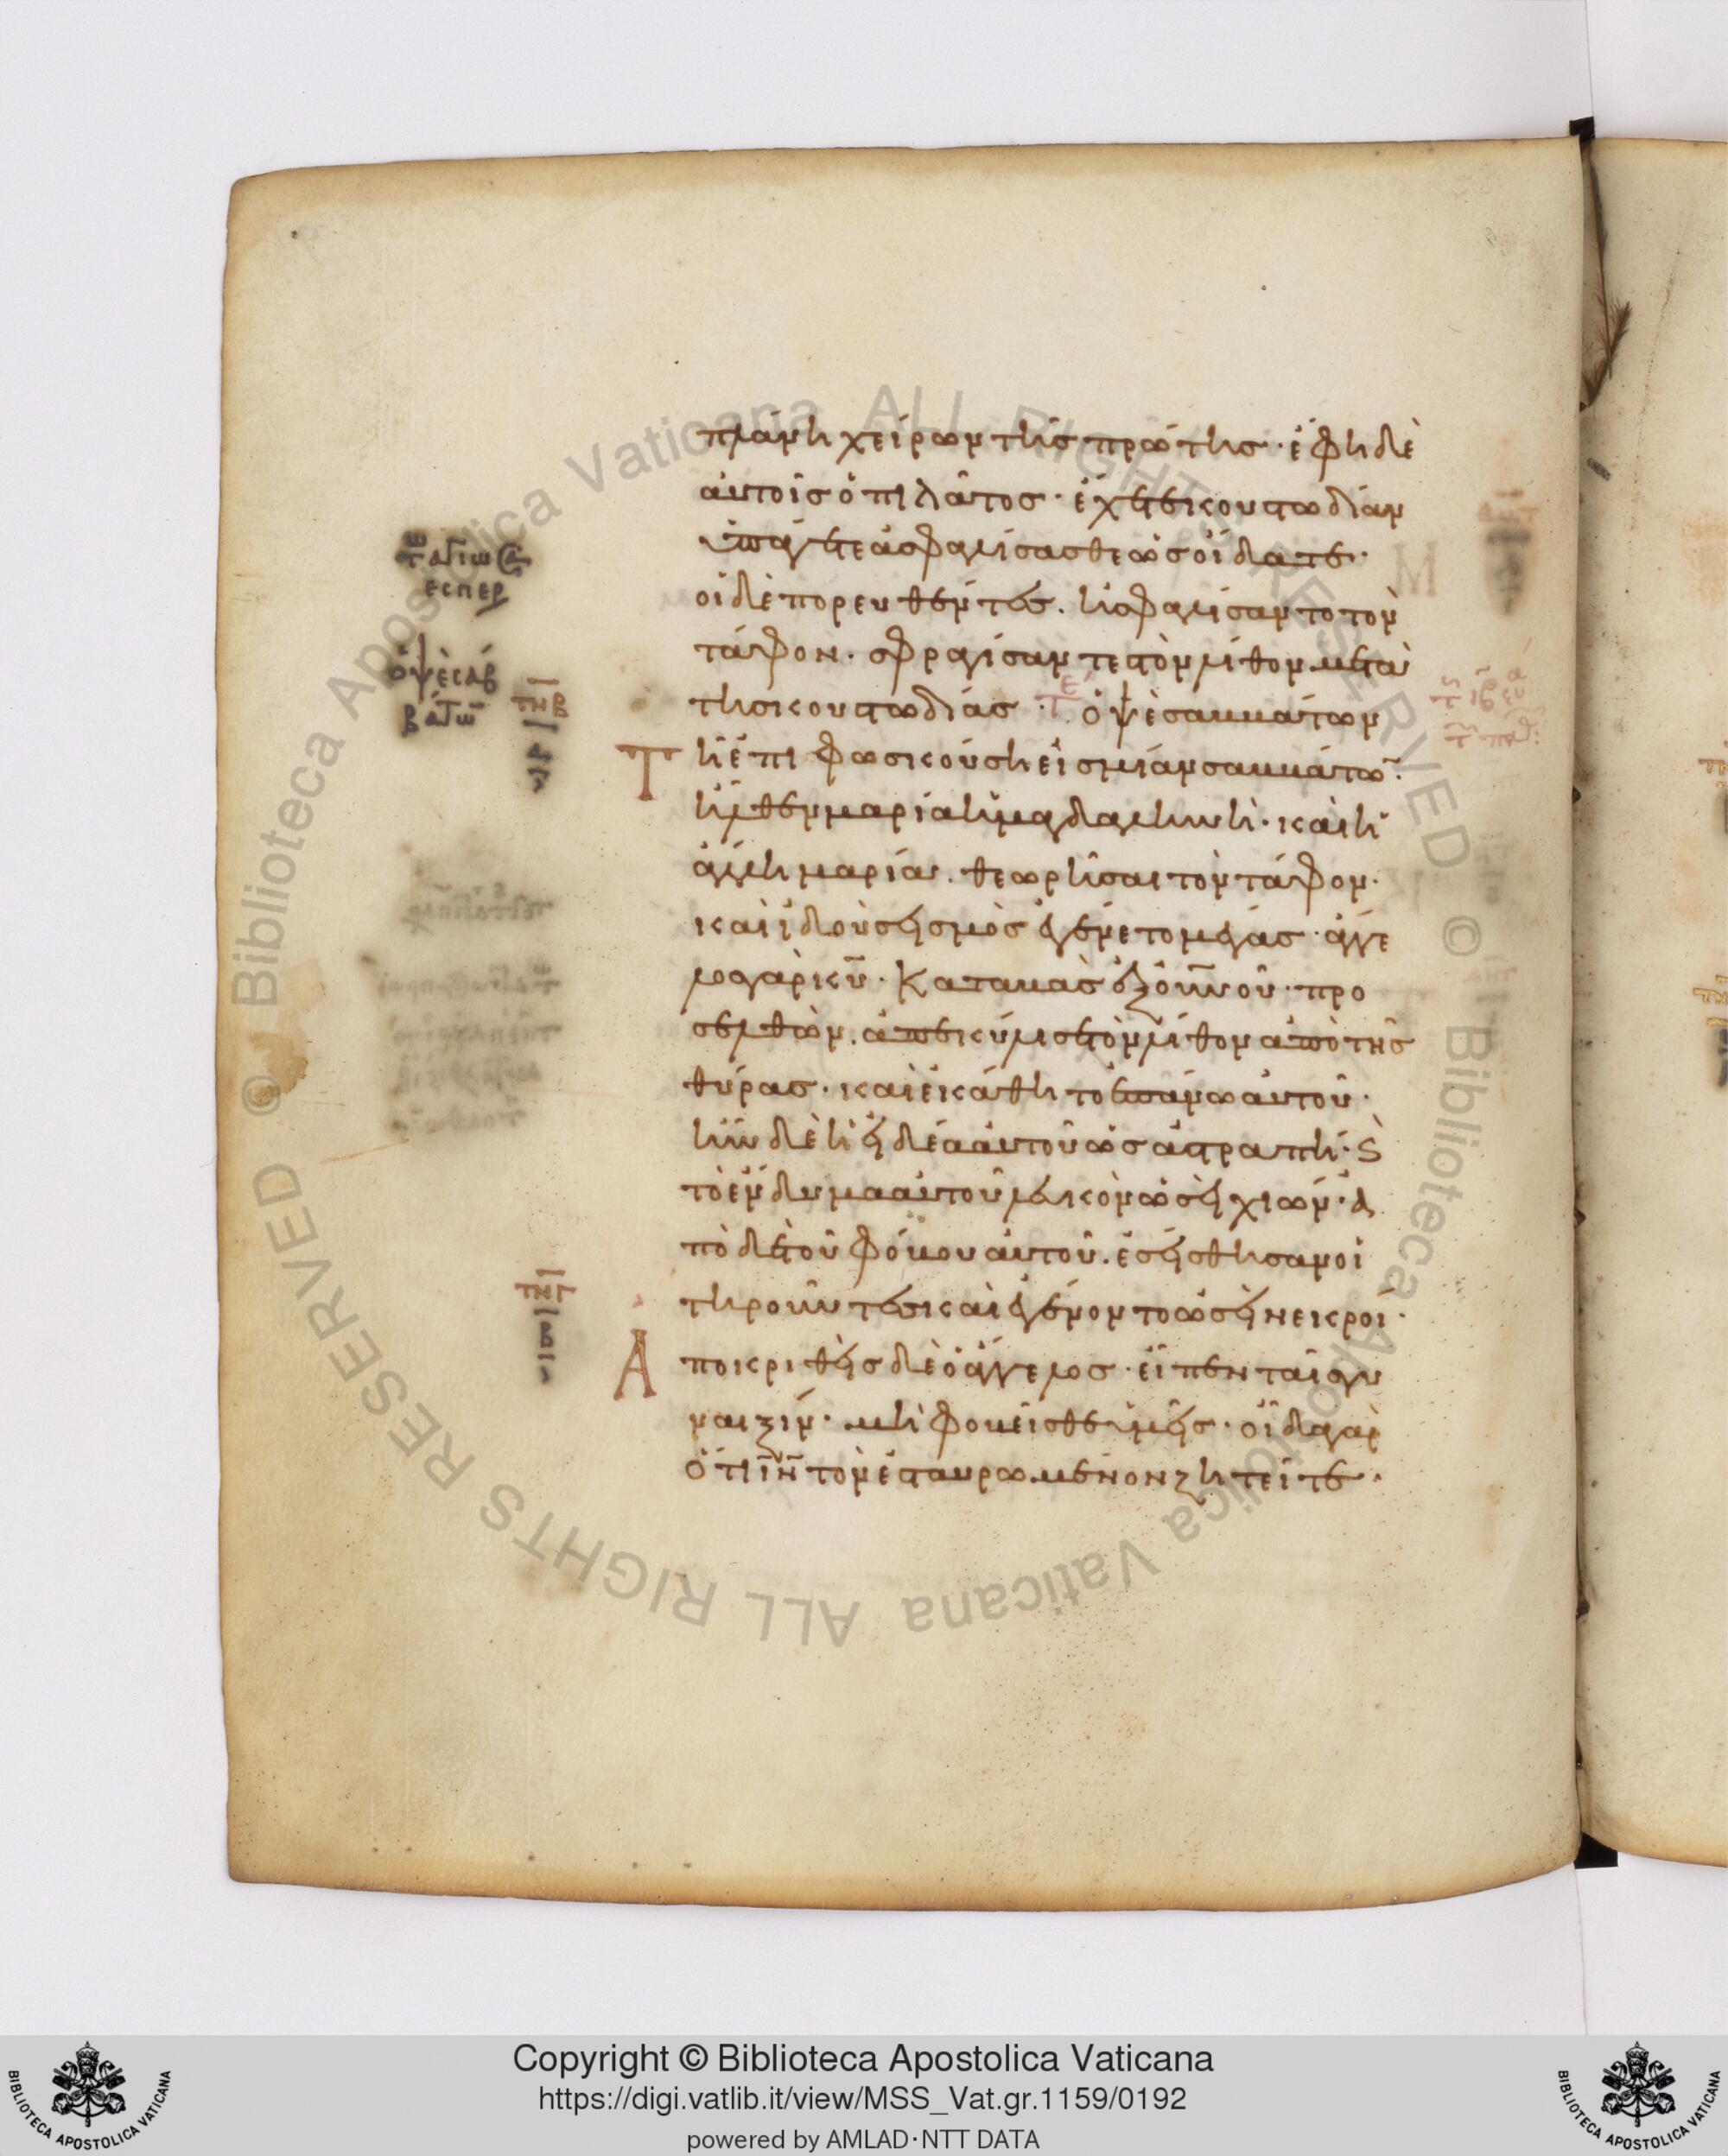 πλάνη χείρων τῆς πρώτης· ἔφη δὲ
αὐτοῖς ὁ πιλᾶτος· ἔχετε κουστωδίαν
ὑπάγετε ἀσφαλίσασθε ὡς οἴδατε·
οἱ δὲ πορευθέντες. ἠσφαλίσαντο τὸν
τάφον. σφραγίσαντες τὸν λίθον μετὰ
τῆς κουστωδίας· ὀψὲ σαββάτων
Τῆ ἐπιφωσκούση εἰς μίαν σαββάτω̅·
ἦλθεν μαρία ἡ μαγδαληνὴ· καὶ ἡ
ἄλλη μαρία. θεωρῆσαι τὸν τάφον·
καὶ ἰδοὺ σεισμὸς ἐγένετο μέγας· ἄγγε
λος γὰρ κ̅υ̅· καταβὰς ἐξ ο̅υ̅ν̅οῦ· προ
σελθὼν. ἀπεκύλισε τὸν λίθον ἀπὸ τῆς
θύρας· καὶ ἐκάθητο ἐπάνω αὐτοῦ·
ἦν δὲ ἡ εἰδέα αὐτοῦ ὡς ἀστραπή· ϗ
τὸ ἔνδυμα αὐτοῦ λευκὸν ὡσεὶ χιών· ἀ
πὸ δὲ τοῦ φόβου αὐτοῦ. ἐσείσθησαν οἱ
τηροῦντες καὶ ἐγένοντο ὡσεὶ νεκροί·
Ἀποκριθεὶς δὲ ὁ ἄγγελος· εἶπεν ταῖς γυ
ναιξίν· μὴ φοβεῖσθε ὑμεῖς· οἶδα γὰρ
ὅτι ι̅ν̅ τὸν ἐσταυρωμένον ζητεῖτε·
τ̅ν̅β̅
τ̅ν̅γ̅
β
Copyright © Biblioteca Apostolica Vaticana
https://digi.vatlib.it/view/MSS_Vat.gr.1159/0192
powered by AMLAD·NTT DATA
BIBLIOTECA APOSTOLICA VATICANA
BIBLIOTECA APOSTOLICA VATICANA
© Biblioteca Apostolica Vaticana ALL RIGHTS RESERVED
© Biblioteca Apostolica Vaticana ALL RIGHTS RESERVED